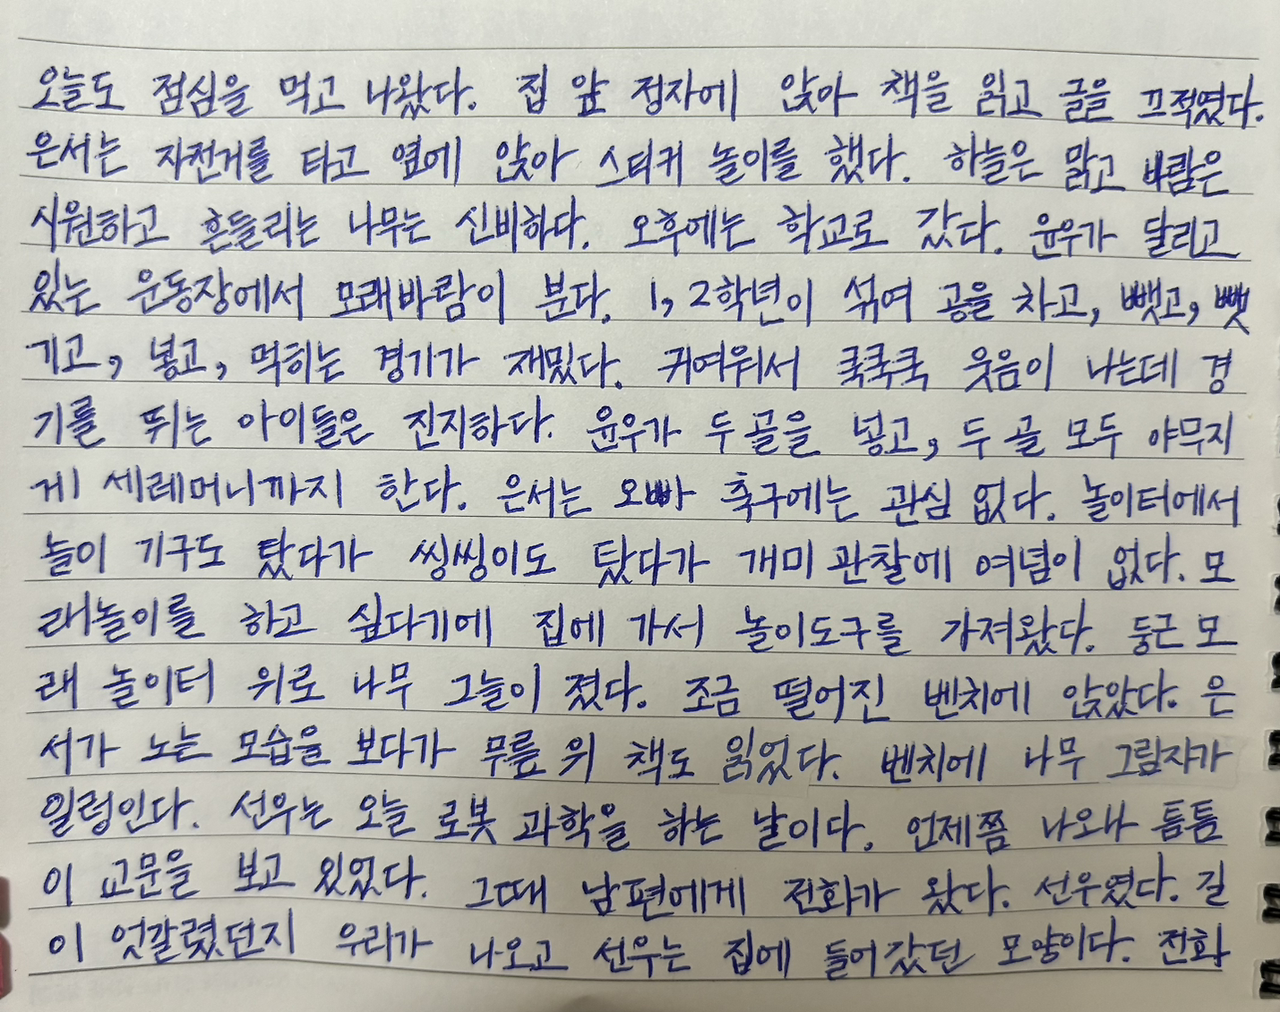 오늘도 점심을 먹고 나왔다. 집 앞 정자에 앉아 책을 읽고 글을 끄적였다.
은서는 자전거를 타고 옆에 앉아 스티커 놀이를 했다. 하늘은 맑고 바람은
시원하고 흔들리는 나무는 신비하다. 오후에는 학교로 갔다. 윤우가 달리고
있는 운동장에서 모래바람이 분다. 1, 2학년이 섞여 공을 차고, 뺏고, 뺏
기고, 넣고, 먹히는 경기가 재밌다. 귀여워서 쿡쿡쿡 웃음이 나는데 경
기를 뛰는 아이들은 진지하다. 윤우가 두 골을 넣고, 두 골 모두 야무지
게 세레머니까지 한다. 은서는 오빠 축구에는 관심 없다. 놀이터에서
놀이 기구도 탔다가 씽씽이도 탔다가 개미 관찰에 여념이 없다. 모
래놀이를 하고 싶다기에 집에 가서 놀이도구를 가져왔다. 둥근 모
래 놀이터 위로 나무 그늘이 졌다. 조금 떨어진 벤치에 앉았다. 은
서가 노는 모습을 보다가 무릎 위 책도 읽었다. 벤치에 나무 그림자가
일렁인다. 선우는 오늘 로봇 과학을 하는 날이다. 언제쯤 나오나 틈틈
이 교문을 보고 있었다. 그때 남편에게 전화가 왔다. 선우였다. 길
이 엇갈렸던지 우리가 나오고 선우는 집에 들어갔던 모양이다. 전화